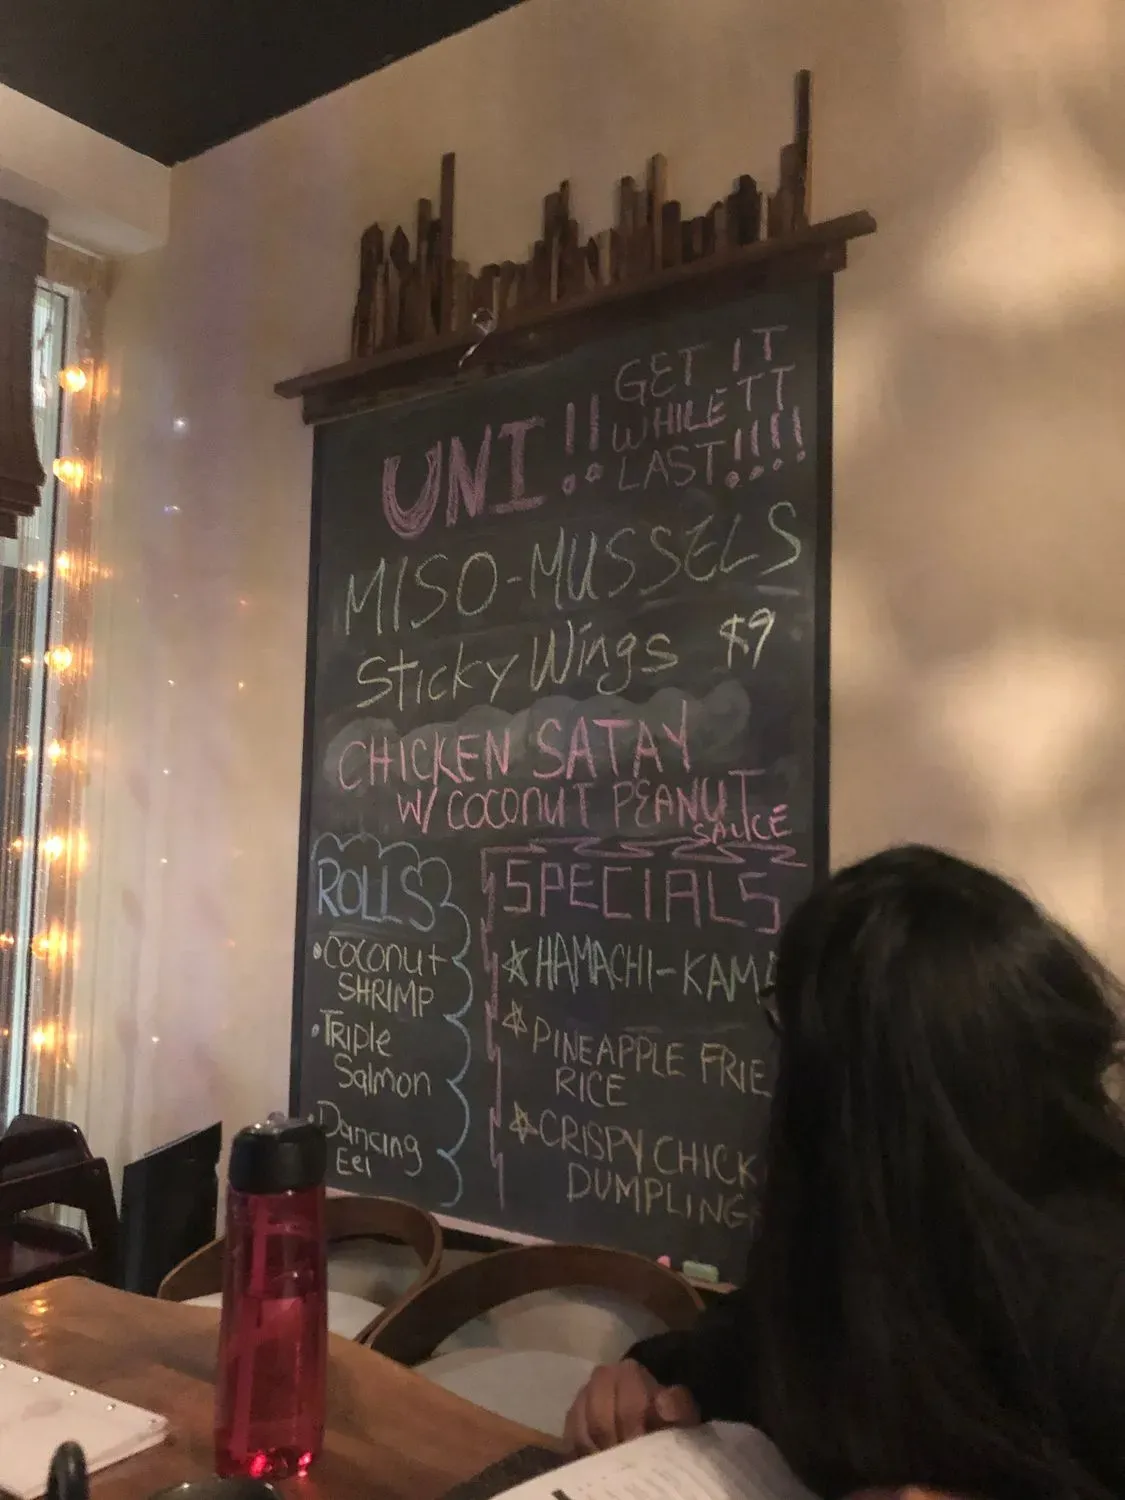 UNI!!
GET IT
WHILE IT
LAST!!!!
MISO-MUSSELS
Sticky Wings $9
CHICKEN SATAY
W/ COCONUT PEANUT
SAUCE
ROLLS
• Coconut
SHRIMP
• TRIPLE
Salmon
• Dancing
Eel
SPECIALS
☆ HAMACHI-KAMA
☆ PINEAPPLE FRIE
RICE
☆ CRISPY CHICK
DUMPLING